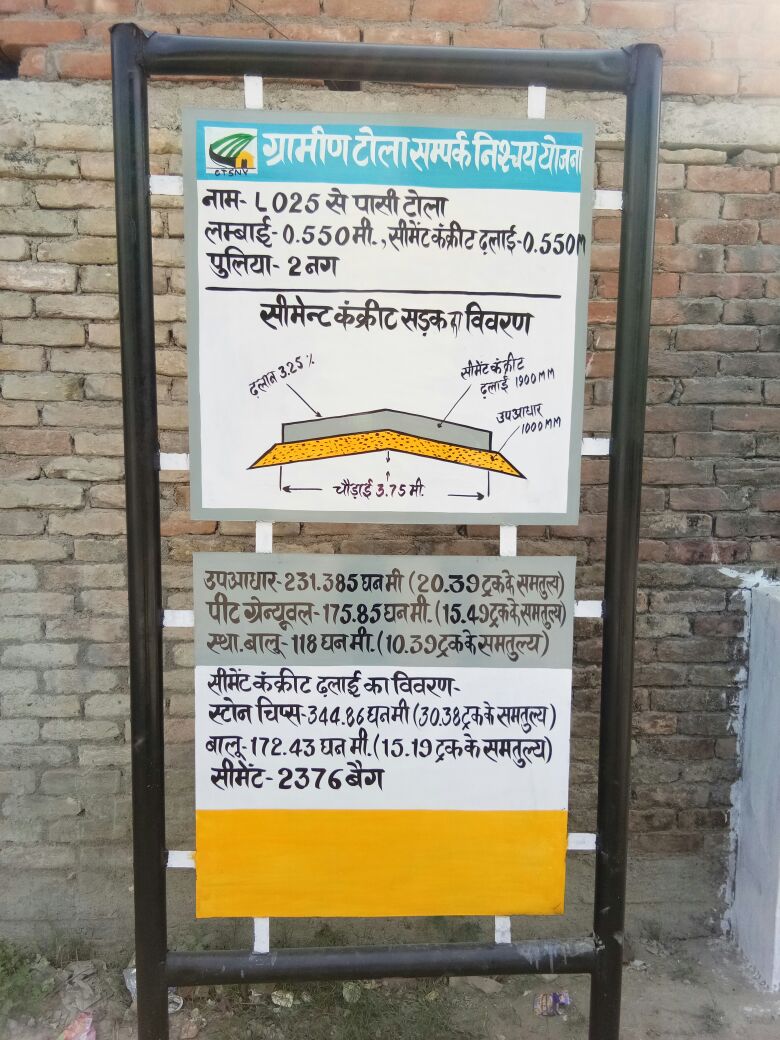 ग्रामीण टोला सम्पर्क निश्चय योजना
GTSNY
नाम- L025 से पासी टोला
लम्बाई-0.550 मी., सीमेंट कंक्रीट ढलाई-0.550M
पुलिया- 2 नग
सीमेन्ट कंक्रीट सड़क का विवरण
ढलान 3.25 %
सीमेंट कंक्रीट
ढलाई 1900 MM
उपआधार
1000 MM
चौड़ाई 3.75 मी.
उपआधार-231.385 घन मी (20.39 ट्रक के समतुल्य)
पीट ग्रेन्यूवल-175.85 घन मी. (15.49 ट्रक के समतुल्य)
स्था. बालू- 118 घन मी. (10.39 ट्रक के समतुल्य)
सीमेंट कंक्रीट ढलाई का विवरण-
स्टोन चिप्स-344.86 घन मी (30.38 ट्रक के समतुल्य)
बालू-172.43 घन मी. (15.19 ट्रक के समतुल्य)
सीमेंट- 2376 बैग